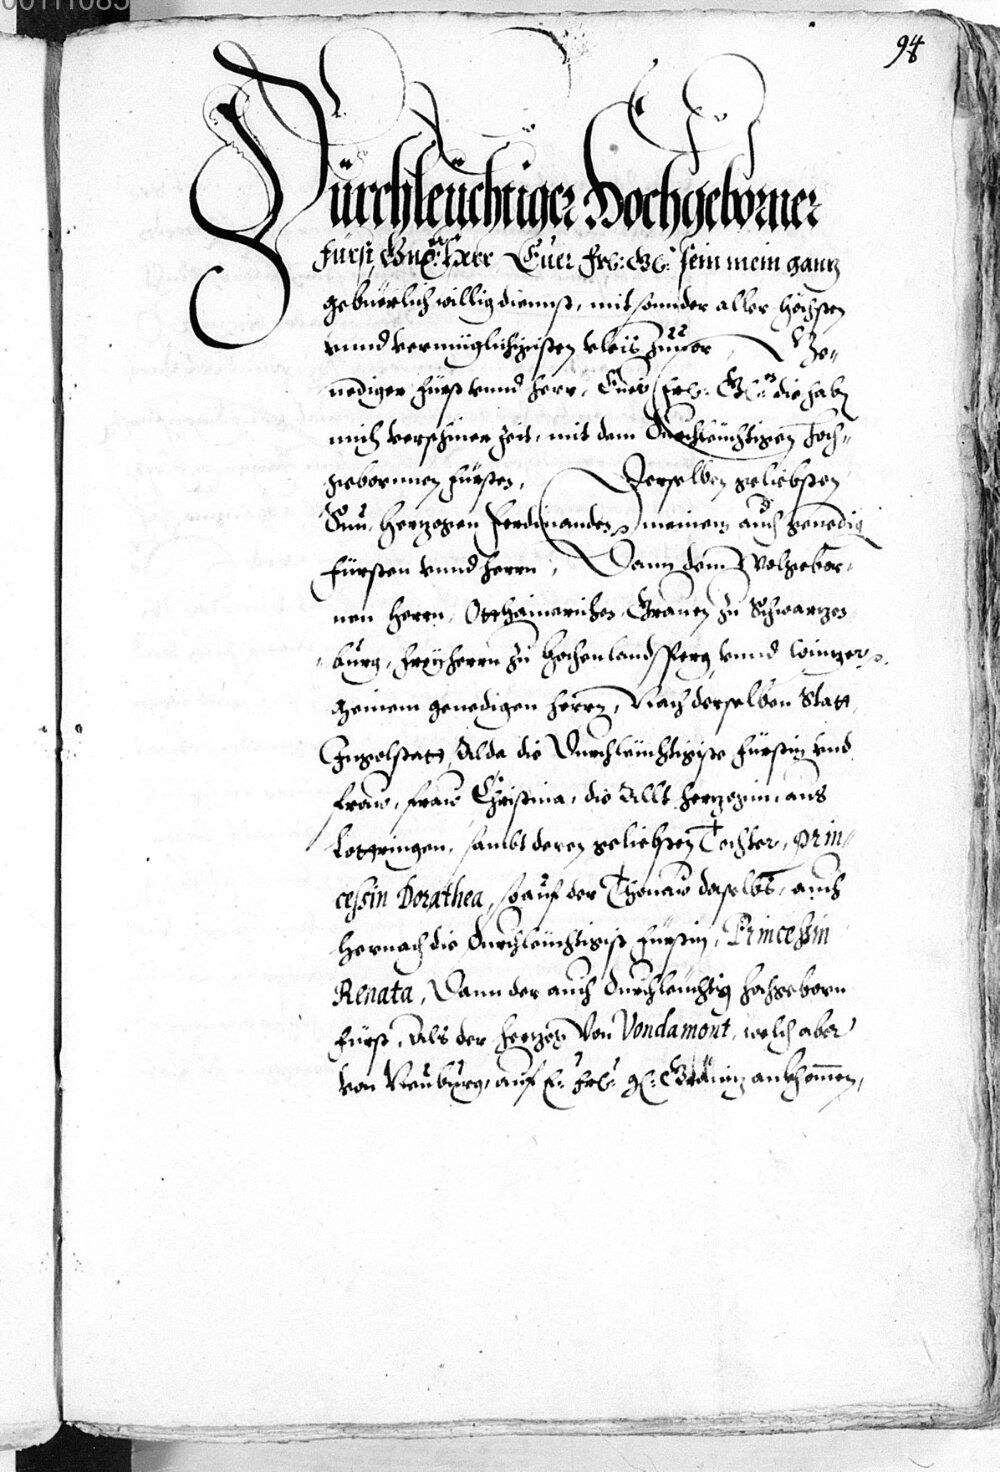 00111085
94
Durchleuchtiger Hochgeborner
Fürst, Gnediger Herr Euer Frl: Gl: sein mein gantz
gebuerlich willig diennst, mit sonnder aller höchsten
vnnd vermüglichisten vleis zuuor, Ge-
nediger Fürst vnnd Herr, Euer Frl: Gl: die habn
mich verschiner Zeit, mit dem Durchleüchtigen Hoch-
gebornnen Fürsten, Derselben geliebsten
Sun, Hertzogen Ferdinanden, meinem auch genedign
Fürsten vnnd Herrn, Dann dem Wolgebor-
nen Herrn, Otthainrichen, Grauen zu Schwartzen
burg, Freyherrn zu Hochenlandsperg vnnd Winzer
meinem genedigen Herrn, Nach derselben Statt
Ingolstatt, Alda die Durchleüchtigiste Fürstin vnd
Fraw, Fraw Christina, die Allt Hertzogin, aus
Lottringen, sambt deren geliebsten Tochter, Prin-
cessin Dorathea, so auf der Thonaw daselbs, auch
hernach die Durchleüchtigist Fürstin, Princessin
Renata, Dann der auch Durchleuchtig Hochgeborn
Fürst, Als der Hertzog Von Vondamont, welch aber
von Neuburg, auf E: Frl: Gl: Gränitz ankhommen,